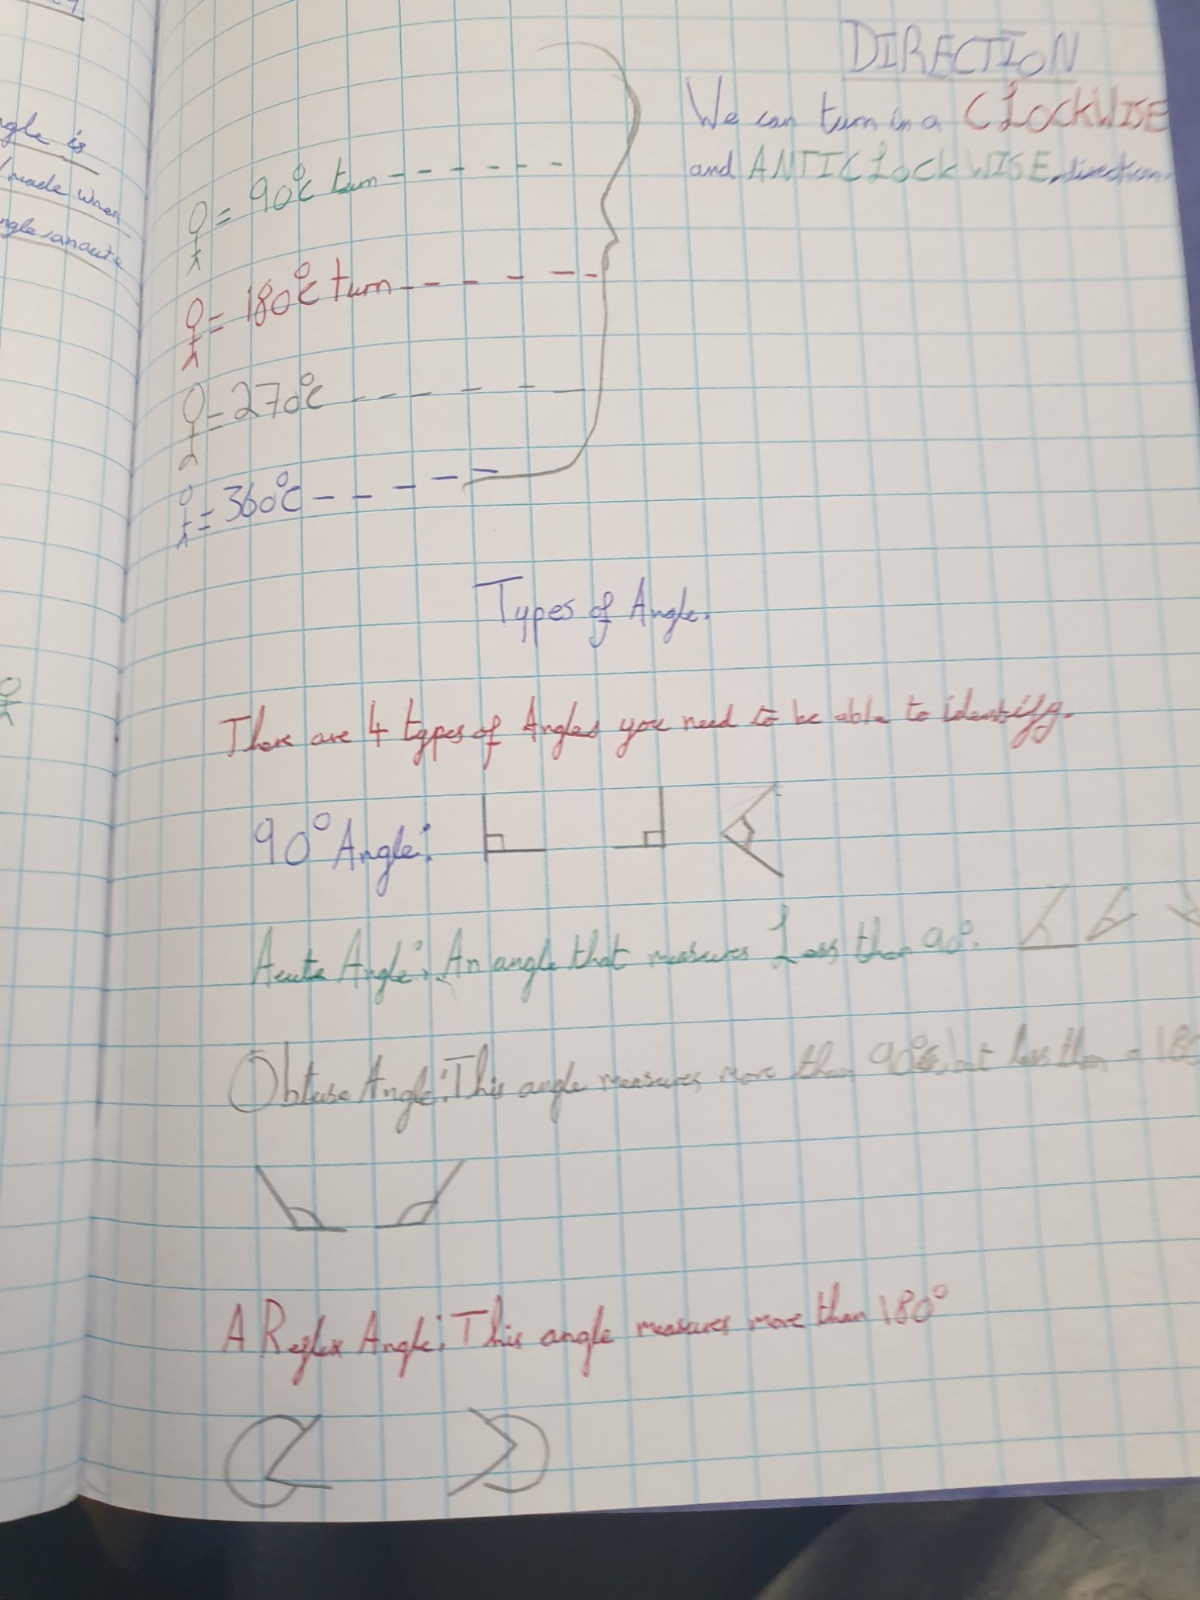 ngle is
made when
DIRECTION
We can turn in a CLOCKWISE
and ANTICLOCKWISE direction
= 90°c turn - - - - -
= 180°c turn - - - - - -
= 270°c - - - - - -
= 360°c - - - - -
Types of Angle.
There are 4 types of Angles you need to be able to identify.
90° Angle:
Acute Angle: An angle that measures Less than 90°.
Obtuse Angle: This angle measures more than 90° but less than a 180
A Reflex Angle: This angle measures more than 180°